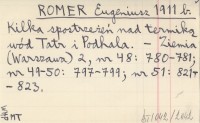 ROMER Eugeniusz 1911 b.
Kilka spostrzeżeń nad termiką
wód Tatr i Podhala. - Ziemia
(Warszawa) 2, nr 48: 780-781;
nr 49-50: 797-799; nr 51: 821-
- 823.
GMT